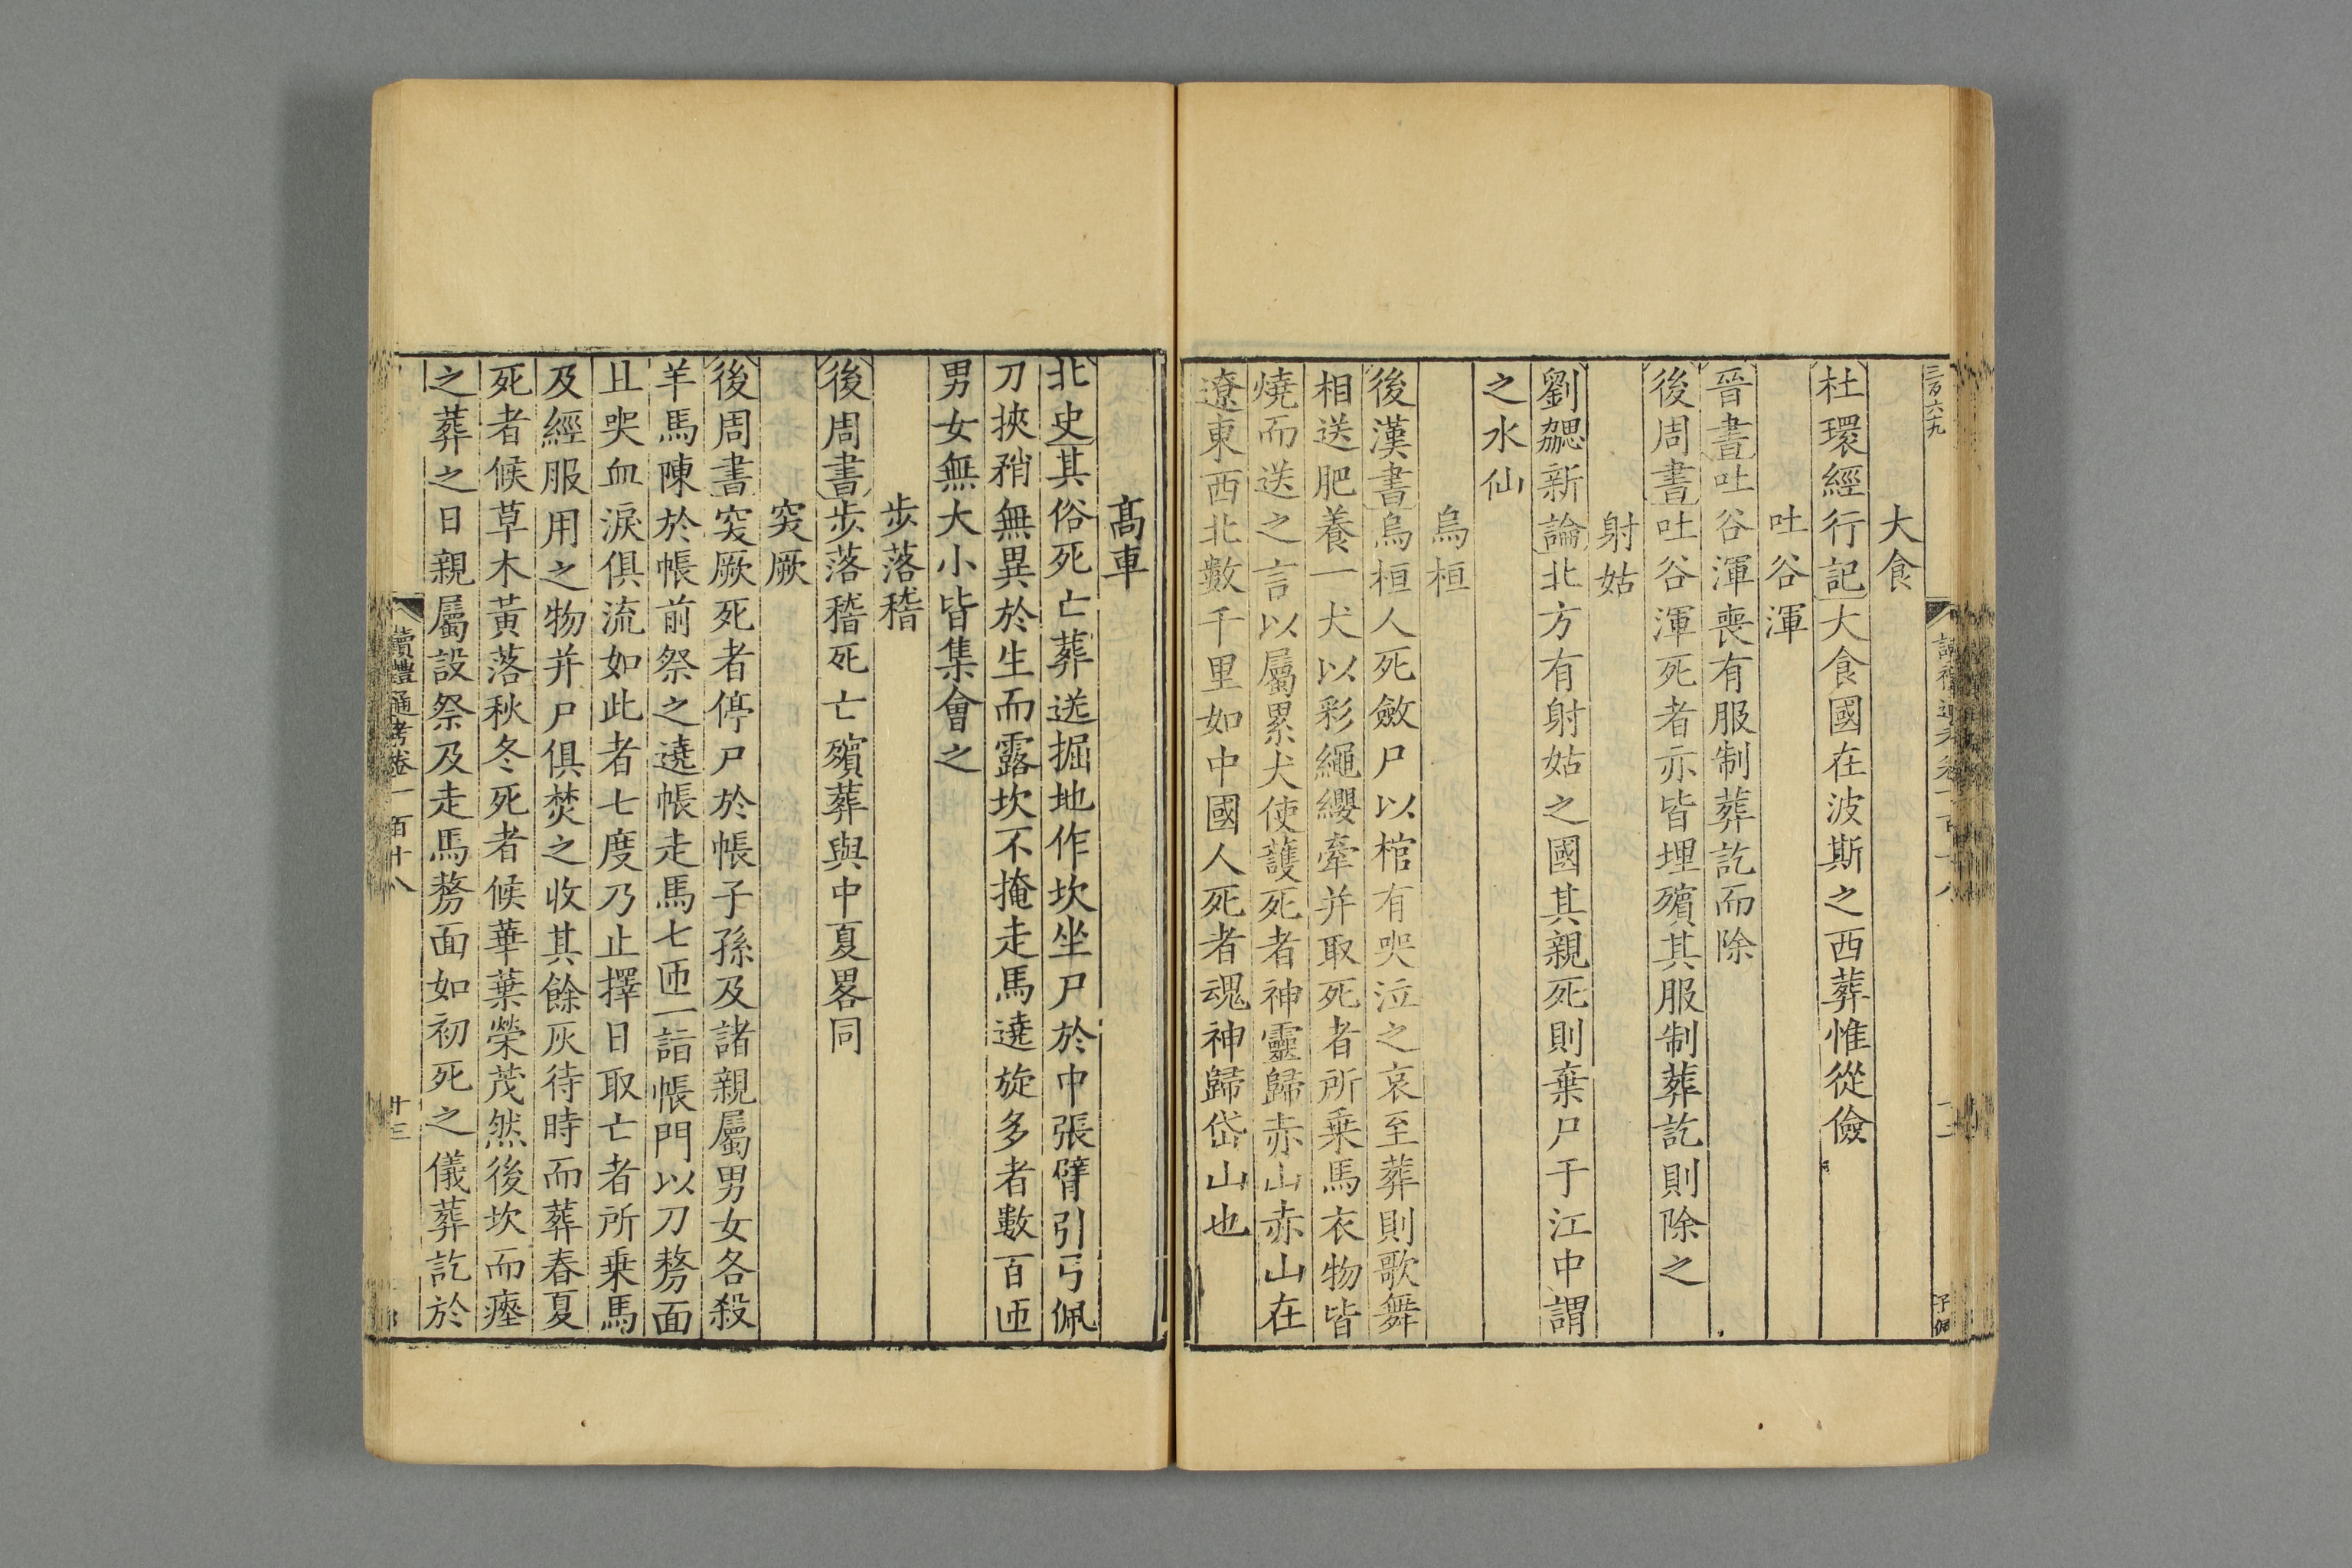 三百六九
大食
杜環經行記大食國在波斯之西葬惟從儉
吐谷渾
晉書吐谷渾喪有服制葬訖而除
後周書吐谷渾死者亦皆埋殯其服制葬訖則除之
射姑
劉勰新論北方有射姑之國其親死則棄尸于江中謂
之水仙
烏桓
後漢書烏桓人死斂尸以棺有哭泣之哀至葬則歌舞
相送肥養一犬以彩繩纓牽并取死者所乗馬衣物皆
燒而送之言以屬累犬使護死者神靈歸赤山赤山在
遼東西北數千里如中國人死者魂神歸岱山也
髙車
北史其俗死亡葬送掘地作坎坐尸於中張臂引弓佩
刀挾矟無異於生而露坎不掩走馬遶旋多者數百匝
男女無大小皆集會之
步落稽
後周書步落稽死亡殯葬與中夏畧同
突厥
後周書突厥死者停尸於帳子孫及諸親屬男女各殺
羊馬陳於帳前祭之遶帳走馬七匝一詣帳門以刀剺面
且哭血淚俱流如此者七度乃止擇日取亡者所乗馬
及經服用之物并尸俱焚之收其餘灰待時而葬春夏
死者候草木黃落秋冬死者候華葉榮茂然後坎而瘞
之葬之日親屬設祭及走馬剺面如初死之儀葬訖於
讀禮通考卷一百十八
廿三